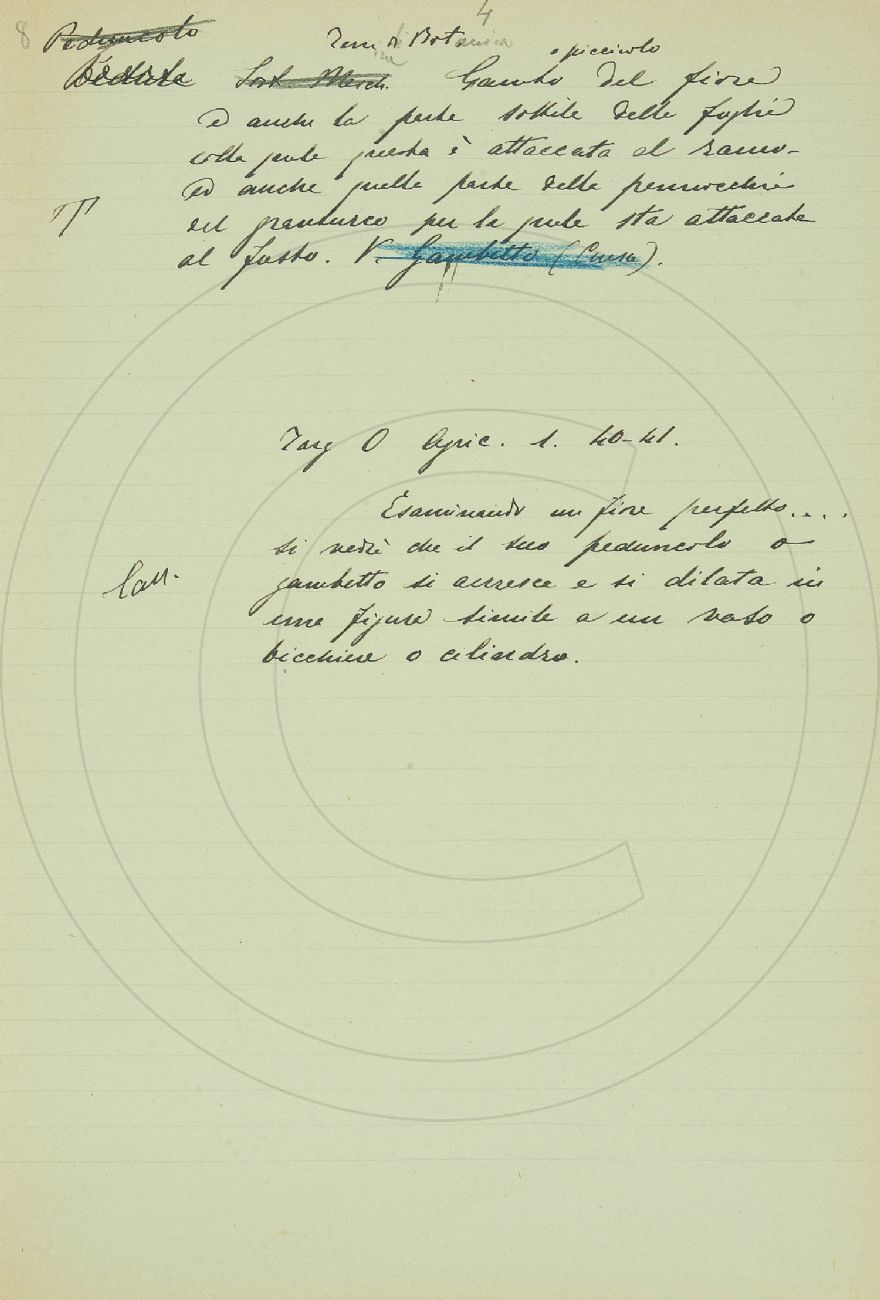 8 4
Peduncolo Term di Botanica o picciolo
Sost. Masch. Gambo del fiore
e anche la parte sottile delle foglie
colla quale questa è attaccata al ramo
ed anche quella parte della pannocchia
del granturco per la quale sta attaccata
al fusto. V. Gambetto (Crusca).
Targ O Agric. 1. 40-41.
Esaminando un fiore perfetto....
si vedrà che il suo peduncolo o
gambetto si accresce e si dilata in
una figura simile a un vaso o
bicchiere o cilindro.